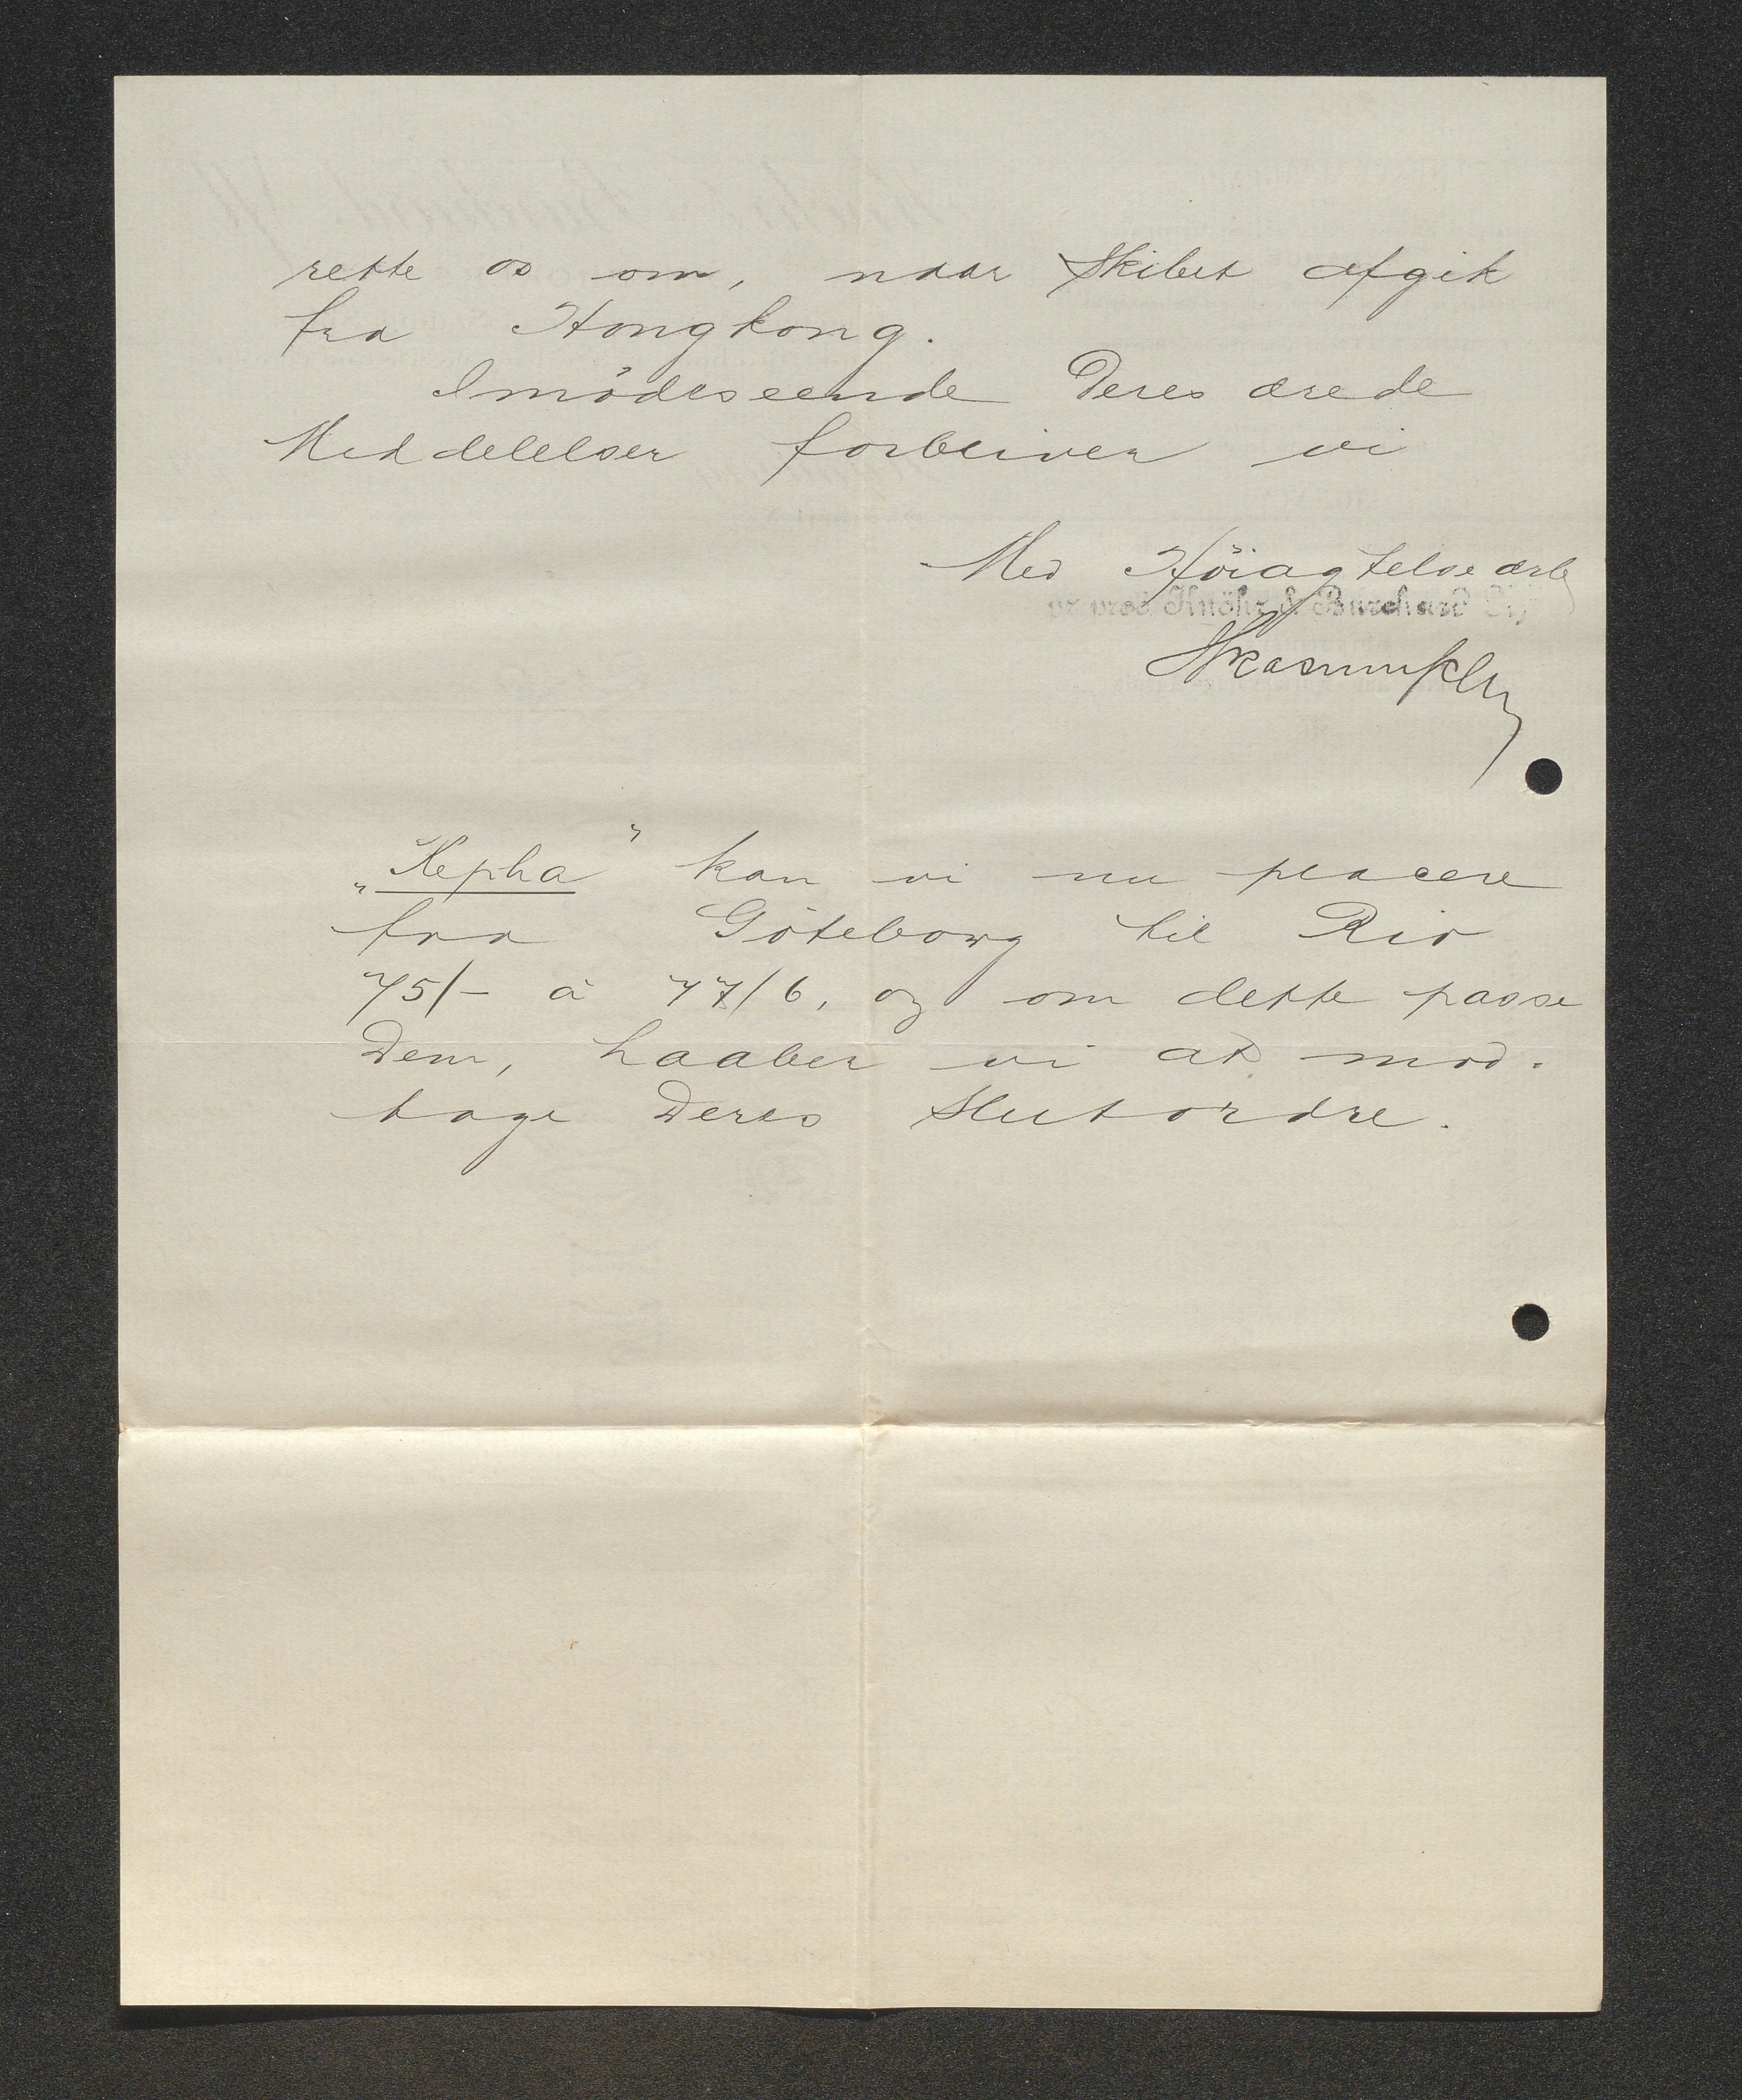 rette os om, naar Skibet afgik
fra Hongkong.
Imödeseende Deres ærede
Meddelelser forbliver vi
Med Höiagtelse ærb
pr. prod. Knöhr & Burchard Nfl.
„Kepha" kan vi nu placere
fra Göteborg til Rio
75/- à 77/6, og om dette passe
Dem, haaber vi at mod-
tage Deres Slutordre.